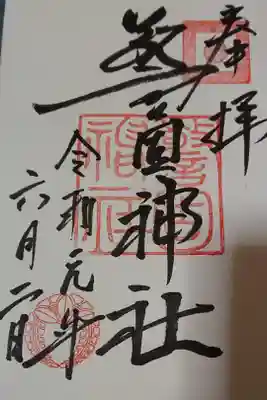 奉拝
警固神社
令和元年
六月二日